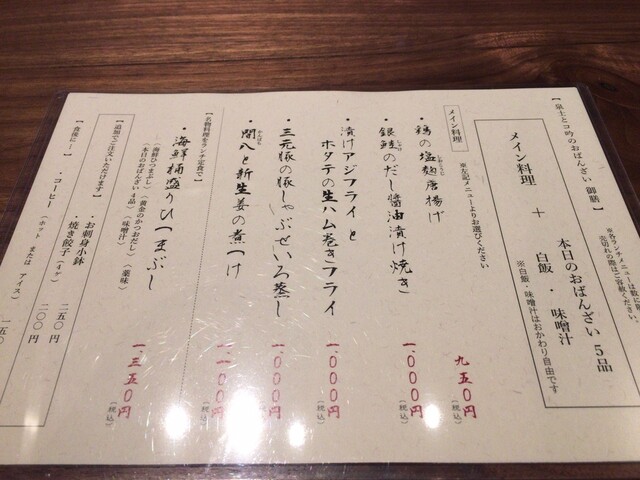 【泉士とコ吟のおばんざい 御膳】
※各ランチメニューは数に限
売切れの際はご容赦ください。
メイン料理 + 本日のおばんざい5品
白飯・味噌汁
※白飯・味噌汁はおかわり自由です
メイン料理
※左記メニューよりお選びください
・鶏の塩麹唐揚げ 九五〇円(税込)
・銀鮭のだし醤油漬け焼き 一、〇〇〇円(税込)
・漬けアジフライと
ホタテの生ハム巻きフライ 一、〇〇〇円(税込)
・三元豚の豚しゃぶせいろ蒸し 一、〇〇〇円(税込)
・間八と新生姜の煮つけ 一、一〇〇円(税込)
【名物料理をランチ定食で】
・海鮮桶盛りひつまぶし 一、三五〇円(税込)
〈海鮮ひつまぶし〉〈黄金のかつおだし〉〈薬味〉
〈本日のおばんざい4品〉〈味噌汁〉
【追加でご注文いただけます】
・お刺身小鉢 二五〇円
・焼き餃子(4ケ) 二〇〇円
【食後に…】
・コーヒー (ホット または アイス) 一五〇